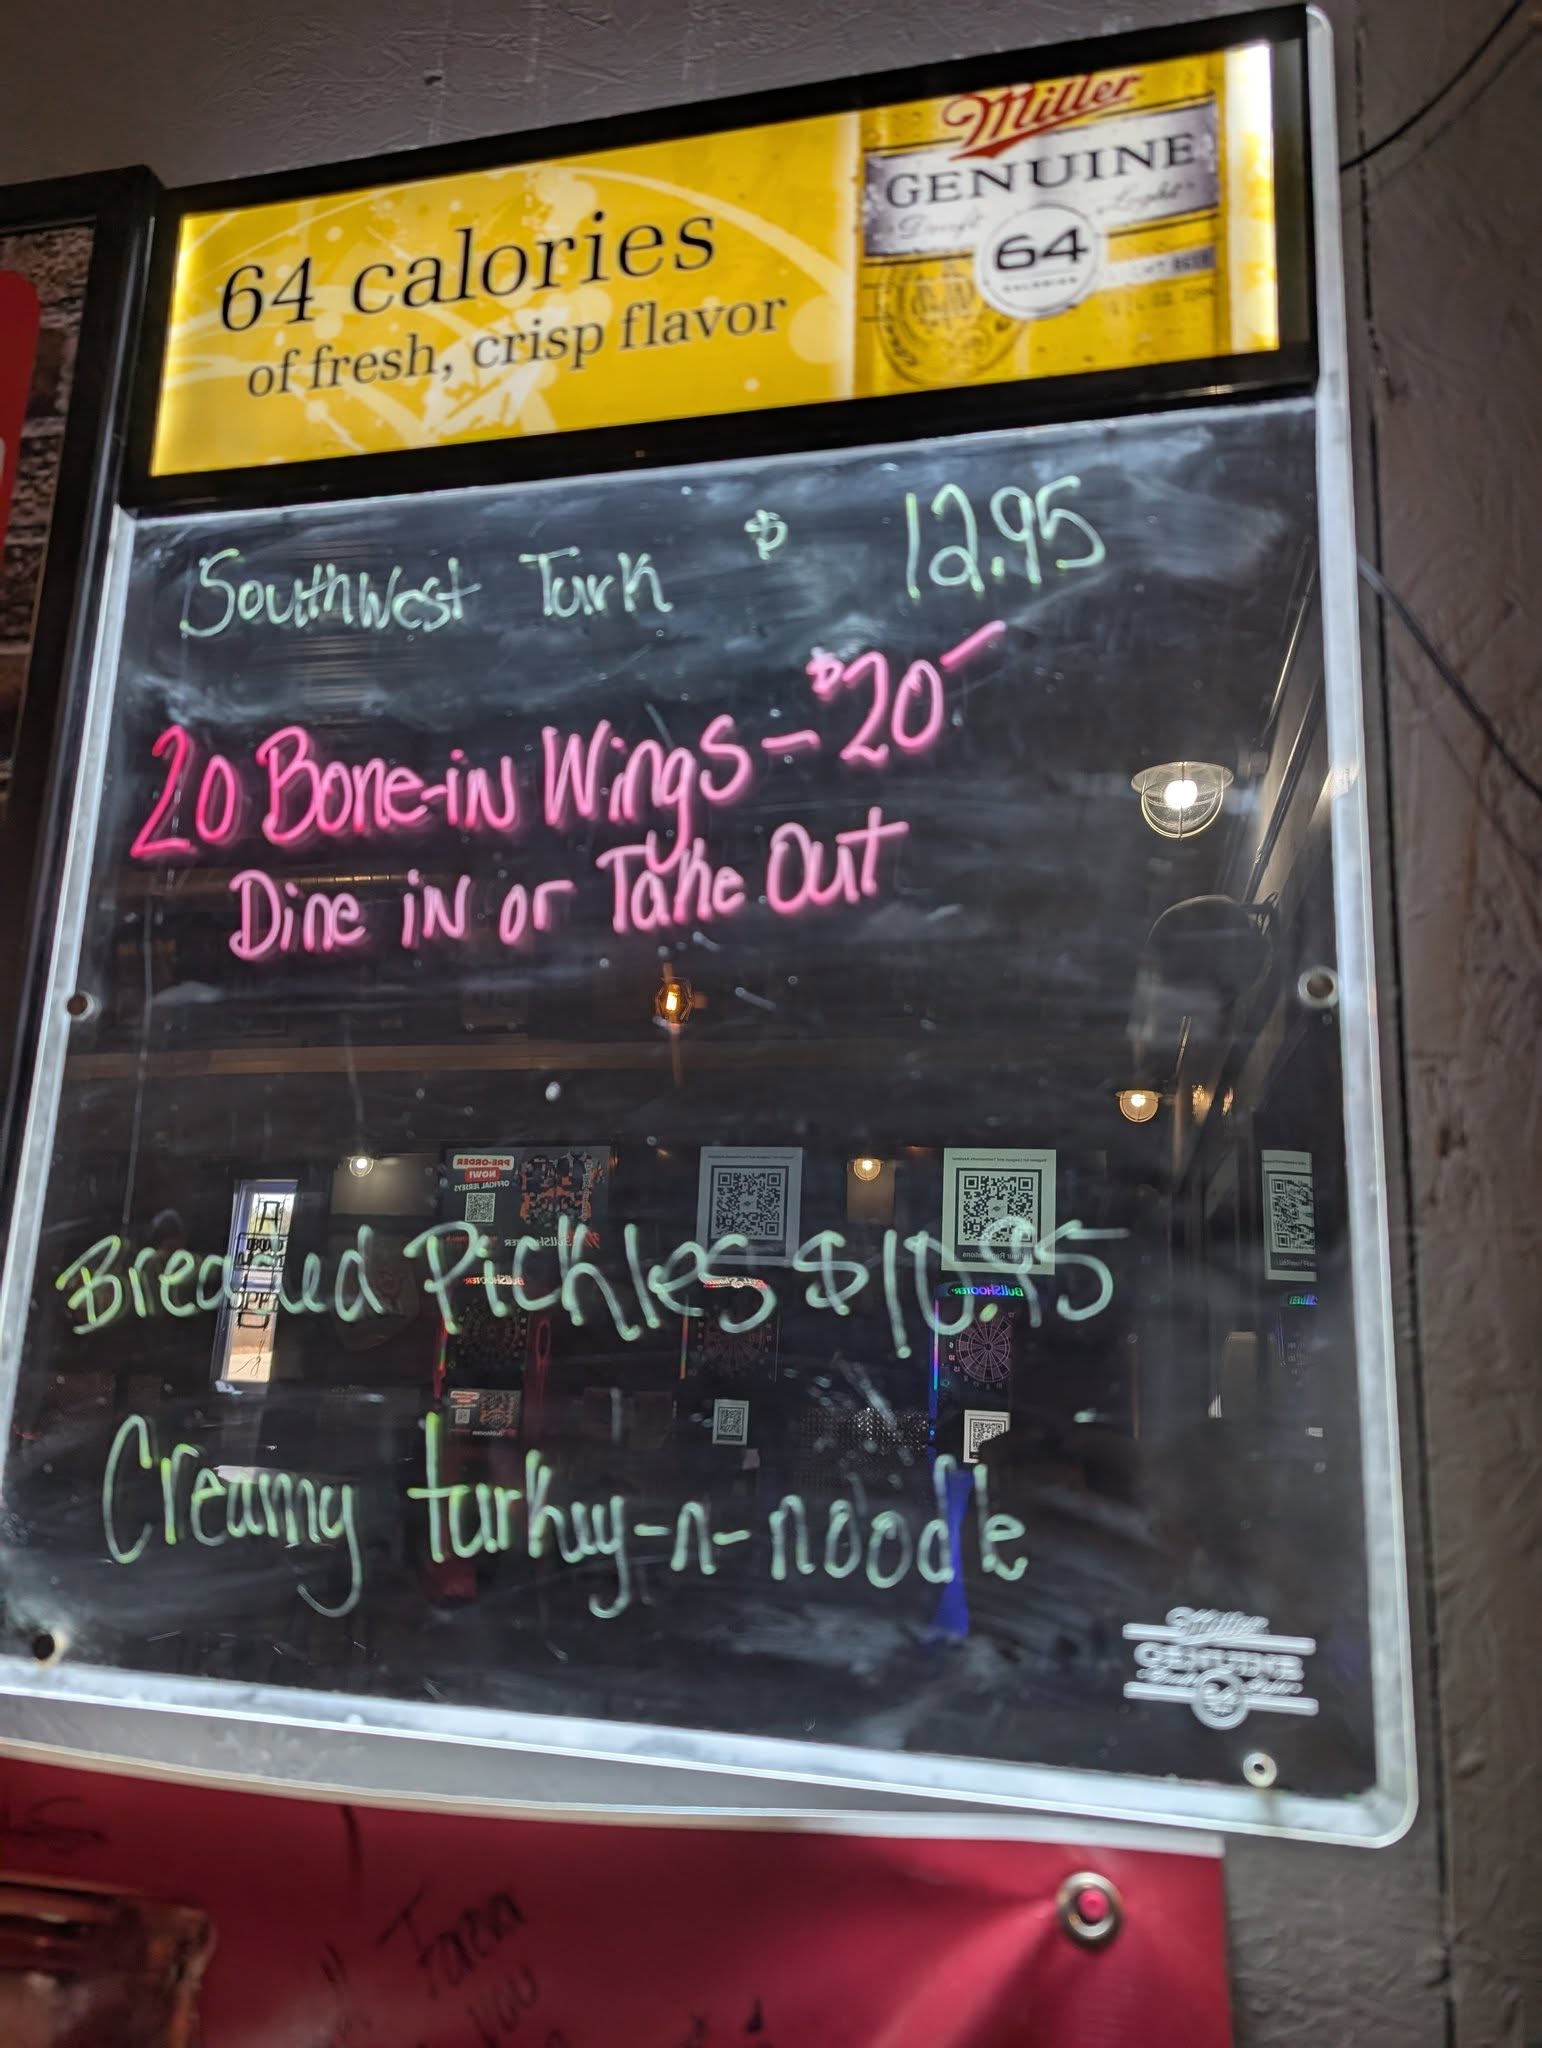 Miller
GENUINE
Draft Light
64
CALORIES
64 calories
of fresh, crisp flavor
Southwest Turk $ 12.95
20 Bone-in Wings - $20-
Dine in or Take Out
PRE-ORDER
NOW!
OFFICIAL JERSEYS
BullShooter
BullShooter
Breaded Pickles $10.95
Creamy turkuy-n-noodle
Miller
GENUINE
64
Forever
you